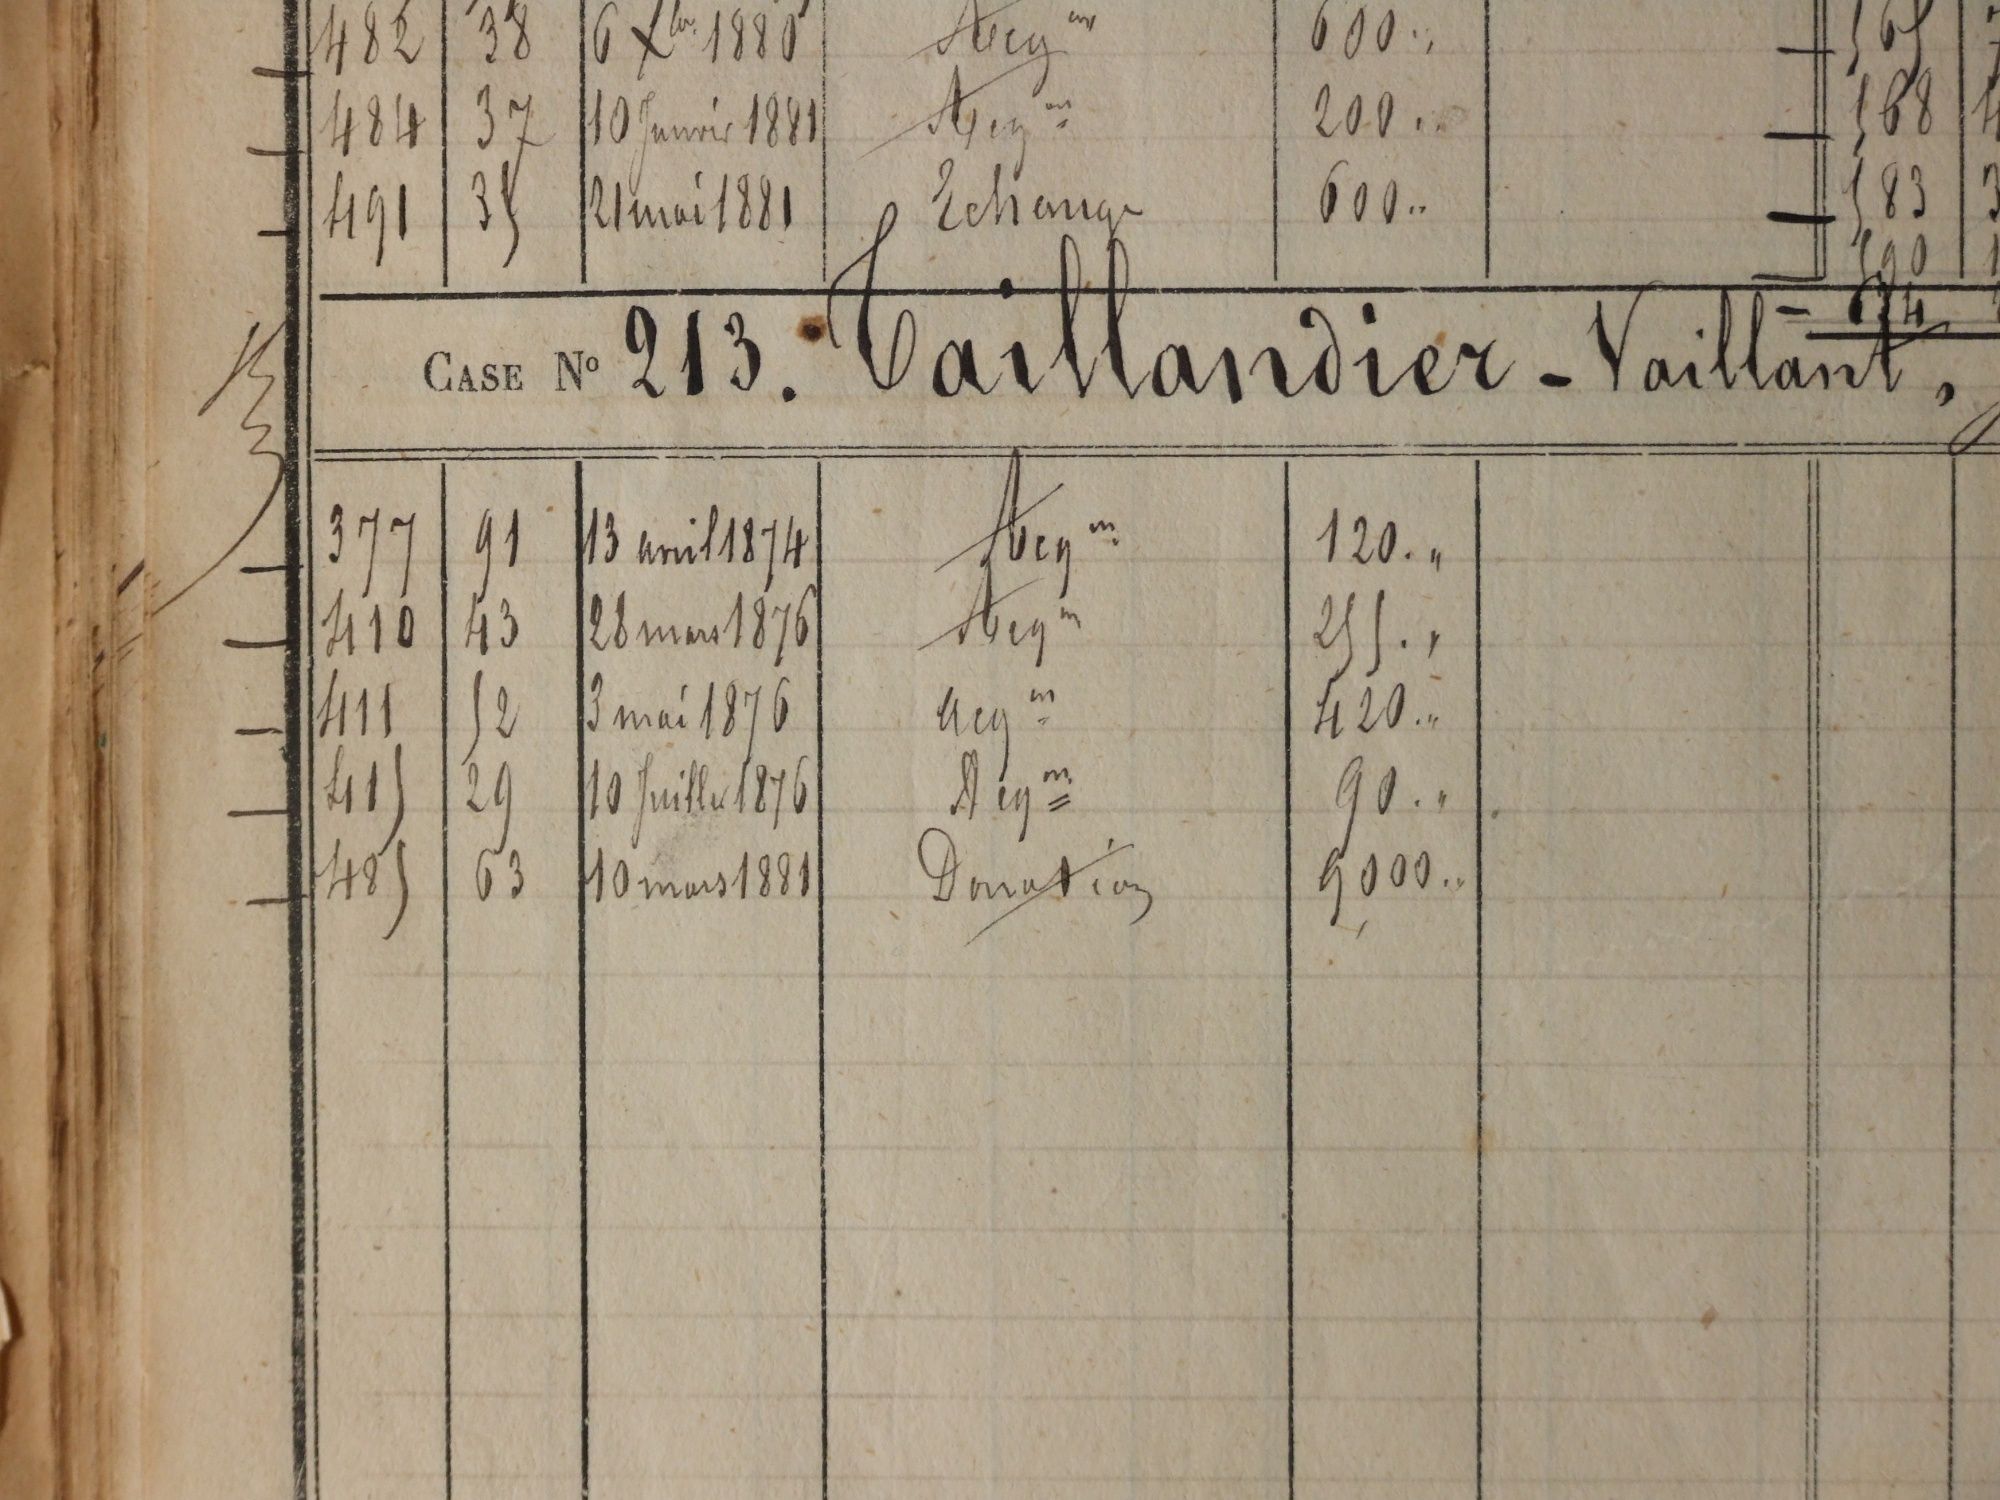 482 38 6 Xbre 1880 Acqon 600 „ 565
484 37 10 Janvier 1881 Acqon 200 „ 568 4
491 35 21 mai 1881 Echange 600 „ 583 3
590 1
CASE No 213. Taillandier - Vaillant, 634
377 91 13 avril 1874 Acqon 120. „
410 43 28 mars 1876 Acqon 255. „
411 52 3 mai 1876 acqon 420. „
415 29 10 Juillet 1876 Acqon 90. „
485 63 10 mars 1881 Donation 9000 „